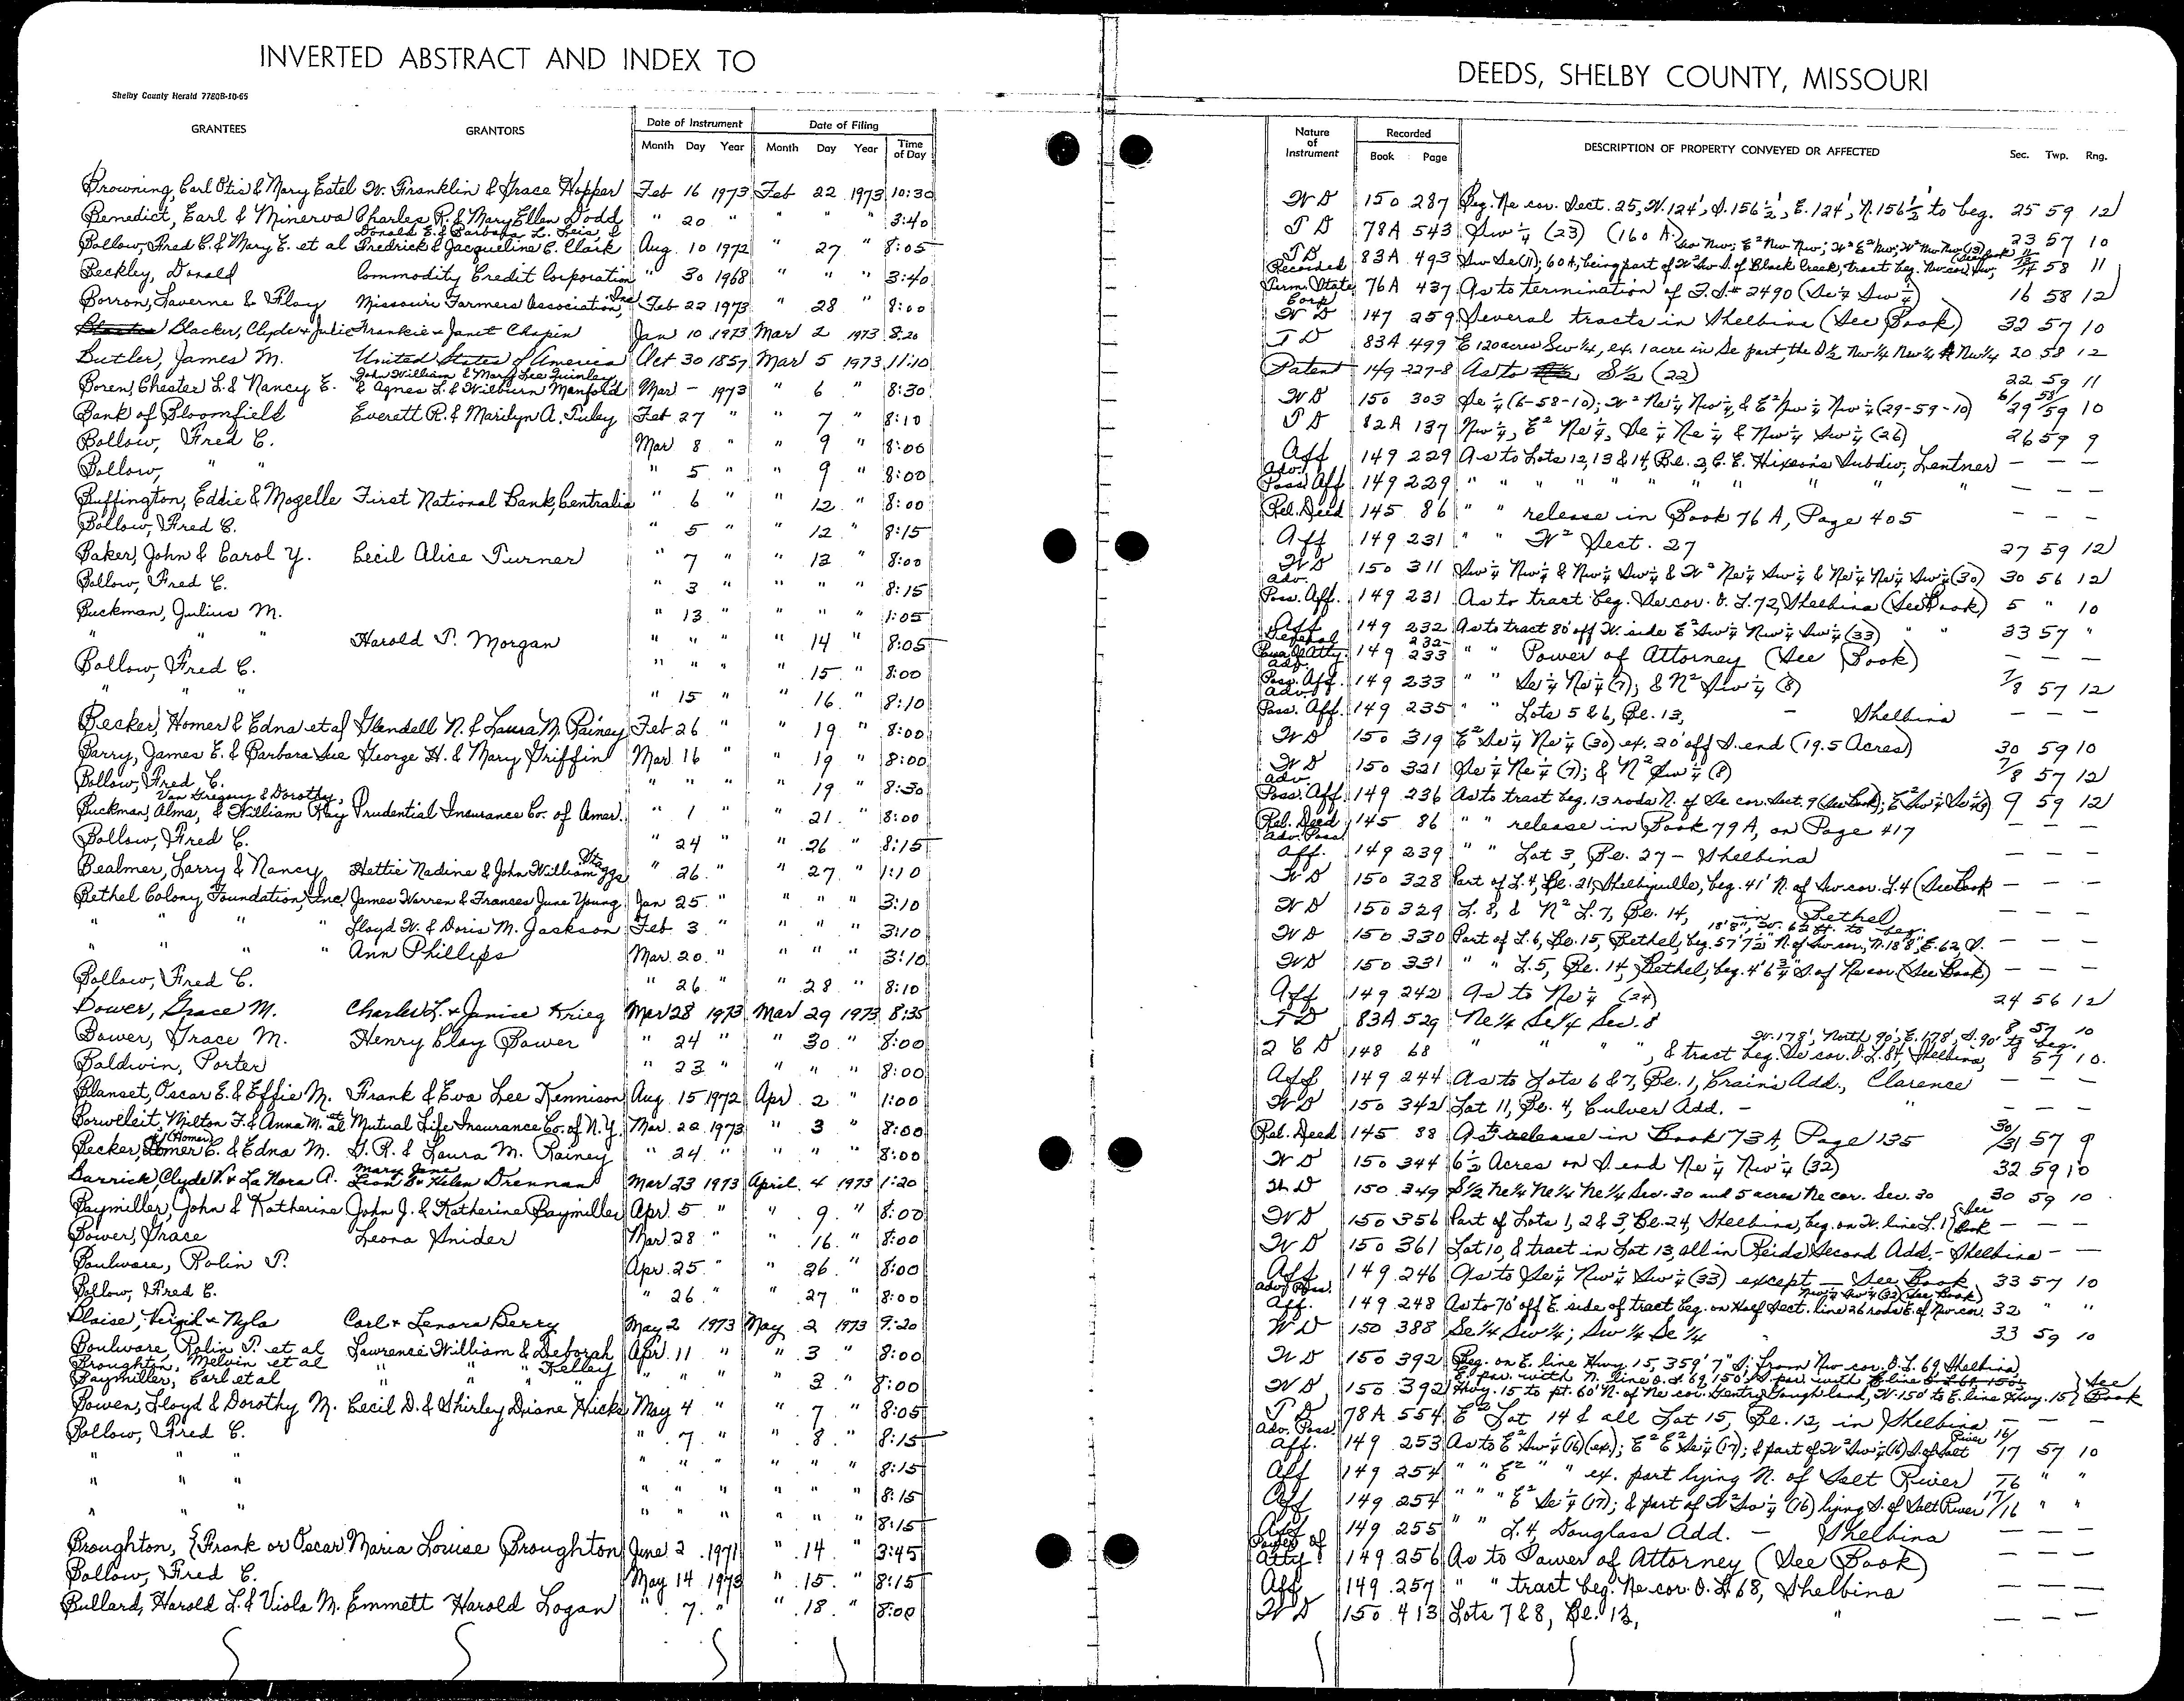 INVERTED ABSTRACT AND INDEX TO
DEEDS, SHELBY COUNTY, MISSOURI
Shelby County Herald 7780B-10-65
GRANTEES GRANTORS Date of Instrument Date of Filing
Month Day Year Month Day Year Time of Day
Nature of Instrument Recorded DESCRIPTION OF PROPERTY CONVEYED OR AFFECTED Sec. Twp. Rng.
Book Page
Browning, Carl Otis & Mary Estel W. Franklin & Grace Hopper Feb 16 1973 Feb 22 1973 10:30
Benedict, Earl & Minerva Charles R. & Mary Ellen Dodd " 20 " " " " 3:40
Donald E. & Barbara L. Leis, &
Bollow, Fred C. & Mary E. et al Fredrick & Jacqueline C. Clark Aug. 10 1972 " 27 " 8:05
Beckley, Donald Commodity Credit Corporation " 30 1968 " " " 3:40
Borron, Laverne & Floy Missouri Farmers Association, Inc Feb 22 1973 " 28 " 8:00
Blacker, Clyde & Julie Frankie & Janet Chapin Jan 10 1973 Mar 2 1973 8:20
Butler, James M. United States of America Oct 30 1857 Mar 5 1973 11:10
John William & Mary Lee Quinley
Boren, Chester L. & Nancy E. & Agnes L. & Wilburn Manford Mar - 1973 " 6 " 8:30
Bank of Bloomfield Everett R. & Marilyn A. Tuley Feb 27 " " 7 " 8:10
Bollow, Fred C. Mar 8 " " 9 " 8:00
Bollow, " " " 5 " " 9 " 8:00
Buffington, Eddie & Mozelle First National Bank, Centralia " 6 " " 12 " 8:00
Bollow, Fred C. " 5 " " 12 " 8:15
Baker, John & Carol Y. Cecil Alice Turner " 7 " " 13 " 8:00
Bollow, Fred C. " 3 " " " " 8:15
Buckman, Julius M. " 13 " " " " 1:05
" " " Harold P. Morgan " " " " 14 " 8:05
Bollow, Fred C. " " " " 15 " 8:00
" " " " 15 " " 16 " 8:10
Becker, Homer & Edna et al Glendell N. & Laura M. Rainey Feb 26 " " 19 " 8:00
Barry, James E. & Barbara Sue George H. & Mary Griffin Mar 16 " " 19 " 8:00
Bollow, Fred C. " " " " 19 " 8:30
Van Gregory & Dorothy,
Buckman, Alma, & William Ray Prudential Insurance Co. of Amer. " 1 " " 21 " 8:00
Bollow, Fred C. " 24 " " 26 " 8:15
Bealmer, Larry & Nancy Hettie Nadine & John William " 26 " " 27 " 1:10
Bethel Colony Foundation, Inc James Warren & Frances June Young Jan 25 " " " " 3:10
" " " " Lloyd W. & Doris M. Jackson Feb 3 " " " " 3:10
" " " " Ann Phillips Mar. 20 " " " " 3:10
Bollow, Fred C. " 26 " " 28 " 8:10
Bower, Grace M. Charles L. & Janice Krieg Mar 28 1973 Mar 29 1973 8:35
Bower, Grace M. Henry Clay Bower " 24 " " 30 " 8:00
Baldwin, Porter " 23 " " " " 8:00
Blanset, Oscar E. & Effie M. Frank & Eva Lee Kennison Aug. 15 1972 Apr. 2 " 1:00
Borweleit, Milton F. & Anna M. et al Mutual Life Insurance Co. of N.Y. Mar. 22 1973 " 3 " 8:00
Becker, (Homer) C. & Edna M. G. R. & Laura M. Rainey " 24 " " " " 8:00
Mary Jane
Barrick, Clyde V. & La Nora A. Leon & Helen Drennan Mar 23 1973 April 4 1973 1:20
Baymiller, John & Katherine John J. & Katherine Baymiller Apr. 5 " " 9 " 8:00
Bower, Grace Leona Snider Mar. 28 " " 16 " 8:00
Boulware, Rolin T. Apr. 25 " " 26 " 8:00
Bollow, Fred C. " 26 " " 27 " 8:00
Blaise, Virgil & Nyla Carl & Lenora Berry May 2 1973 May 2 1973 9:20
Boulware, Rolin T. et al Lawrence William & Deborah Apr. 11 " " 3 " 8:00
Broughton, Melvin et al " " " Kelley
Baymiller, Carl et al " " " " " " 3 " 8:00
Bowen, Lloyd & Dorothy M. Cecil D. & Shirley Diane Hicks May 4 " " 7 " 8:05
Bollow, Fred C. " 7 " " 8 " 8:15
" " " " " " " " " 8:15
" " " " " " " " " 8:15
" " " " " " " 8:15
Broughton, {Frank or Oscar Maria Louise Broughton June 2 1971 " 14 " 3:45
Bollow, Fred C. May 14 1973 " 15 " 8:15
Bullard, Harold L. & Viola M. Emmett Harold Logan " 7 " " 18 " 8:00
WD 150 287 Beg. Ne cor. Sect. 25, W. 124', S. 156½', E. 124', N. 156½' to beg. 25 59 12
TD 78A 543 Sw ¼ (23) (160 A.) 23 57 10
TD 83A 493 Sw Se (11); 60 A, being part of W² Sw S. of Black Creek, tract beg. Nw cor. 14 58 11
Recorded
Term. State 76A 437 As to termination of F.S.# 2490 (Se ¼ Sw ¼) 16 58 12
Corp
WD 147 259 Several tracts in Shelbina (See Book) 32 57 10
TD 83A 499 E 120 acres Sw ¼, ex. 1 acre in Se part, the S½ Nw¼ Nw¼ & Nw¼ 20 58 12
Patent 149 227-8 As to S½ (22) 22 59 11
WD 150 303 Se ¼ (6-58-10); W² Ne¼ Nw¼, & E² Nw¼ Nw¼ (29-59-10) 6/29 58/59 10
TD 82A 137 Nw¼, E² Ne¼, Se ¼ Ne ¼ & Nw¼ Sw ¼ (26) 26 59 9
Aff 149 229 As to Lots 12, 13 & 14, Bl. 2, C. E. Hixson's Subdiv, Lentner — — —
Adv. Poss. Aff 149 229 " " " " " " " " " " — — —
Rel. Deed 145 86 " " release in Book 76 A, Page 405 — — —
Aff 149 231 " " W² Sect. 27 27 59 12
WD 150 311 Sw¼ Nw¼ & Nw¼ Sw¼ & W² Ne¼ Sw¼ & Ne¼ Ne¼ Sw¼ (30) 30 56 12
Adv. Poss. Aff. 149 231 As to tract beg. Se cor. O. L. 72, Shelbina (See Book) 5 " 10
Aff 149 232 As to tract 80' off W. side E² Sw¼ Nw¼ Sw¼ (33) " " 33 57 "
General Pow. Of Atty. 149 232-233 " " Power of Attorney (See Book) — — —
Adv. Poss. Aff. 149 233 " " Se ¼ Ne ¼ (7); & N² Sw ¼ (8) 7/8 57 12
Adv. Poss. Aff. 149 235 " " Lots 5 & 6, Bl. 13, — Shelbina — — —
WD 150 319 E² Se ¼ Ne ¼ (30) ex. 20' off S. end (19.5 Acres) 30 59 10
WD 150 321 Se ¼ Ne ¼ (7); & N² Sw ¼ (8) 7/8 57 12
Adv. Poss. Aff. 149 236 As to tract beg. 13 rods N. of Se cor. Sect. 9 (See Book); E² Sw ¼ Se ¼ (9) 9 59 12
Rel. Deed 145 86 " " release in Book 79 A, on Page 417 — — —
Adv. Poss. Aff. 149 239 " " Lot 3, Bl. 27 - Shelbina — — —
WD 150 328 Part of L. 4, Bl. 21, Shelbyville, beg. 41' N. of Sw cor. L. 4 (See Book — — —
WD 150 329 L. 8, & N² L. 7, Bl. 14, in Bethel — — —
18'8", W. 62 ft. to beg.
WD 150 330 Part of L. 6, Bl. 15, Bethel, beg. 57'7½" N. of Sw cor., N. 18'8", E. 62, S. — — —
WD 150 331 " " L. 5, Bl. 14, Bethel, beg. 4'6¾" S. of Nw cor. (See Book) — — —
Aff 149 242 As to Ne ¼ (24) 24 56 12
TD 83A 529 Ne¼ Se¼ Sec. 8 8 57 10
W. 178', North 90', E. 178', S. 90' to beg.
2 C D 148 68 " " " ", & tract beg. Se cor. O. L. 84, Shelbina, 8 57 10.
Aff 149 244 As to Lots 6 & 7, Bl. 1, Crain's Add., Clarence — — —
WD 150 342 Lot 11, Bl. 4, Culver Add. - " — — —
Rel. Deed 145 88 As to release in Book 73 A, Page 135 30/31 57 9
WD 150 344 6½ Acres on S. end Ne ¼ Nw ¼ (32) 32 59 10
WD 150 349 S½ Ne¼ Ne¼ Ne¼ Sec. 30 and 5 acres Ne cor. Sec. 30 30 59 10
WD 150 356 Part of Lots 1, 2 & 3, Bl. 24, Shelbina, beg. on W. line L. 1 (See Book — — —
WD 150 361 Lot 10, & tract in Lot 13, all in Reids Second Add. - Shelbina — —
Aff 149 246 As to Se ¼ Nw ¼ Sw ¼ (33) except — See Book 33 57 10
Nw ¼ Sw ¼ (32) (See Book)
Adv. Poss. Aff. 149 248 As to 70' off E. side of tract beg. on Half Sect. line 26 rods E. of Nw cor. 32 " "
WD 150 388 Se¼ Sw¼; Sw¼ Se¼ 33 59 10
WD 150 392 Beg. on E. line Hwy. 15, 359'7" S. from Nw cor. O. L. 69 Shelbina,
E. par. with N. line O. L. 69 150', S. par. with
WD 150 392 Hwy. 15 to pt. 60' N. of Ne cor. Gentry Gough land, W. 150' to E. line Hwy. 15 } See Book
TD 78A 554 E² Lot 14 & all Lot 15, Bl. 12, in Shelbina — — —
Adv. Poss. Aff. 149 253 As to E² Sw¼ (16) (ex.); E² E² Se¼ (17); & part of W² Sw¼ (16) S. of Salt River 16/17 57 10
Aff 149 254 " " E² " " ex. part lying N. of Salt River 16 " "
Aff 149 254 " " " E² Se ¼ (17); & part of W² Sw ¼ (16) lying S. of Salt River 17/16 " "
Aff 149 255 " " L. 4, Douglass Add. — Shelbina — — —
Power of Atty. 149 256 As to Power of Attorney (See Book) — — —
Aff 149 257 " " tract beg. Ne cor. O. L. 68, Shelbina — — —
WD 150 413 Lots 7 & 8, Bl. 13, " — — —